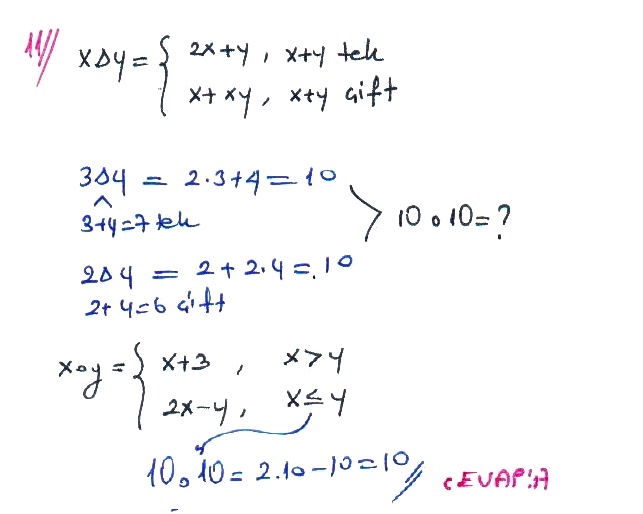 11// x∆y = { 2x+y , x+y tek
x+xy , x+y çift
3∆4 = 2.3+4=10
3+4=7 tek
10 o 10 = ?
2∆4 = 2+2.4=10
2+4=6 çift
xoy = { x+3 , x>y
2x-y , x≤y
10o10 = 2.10-10=10// CEVAP:A